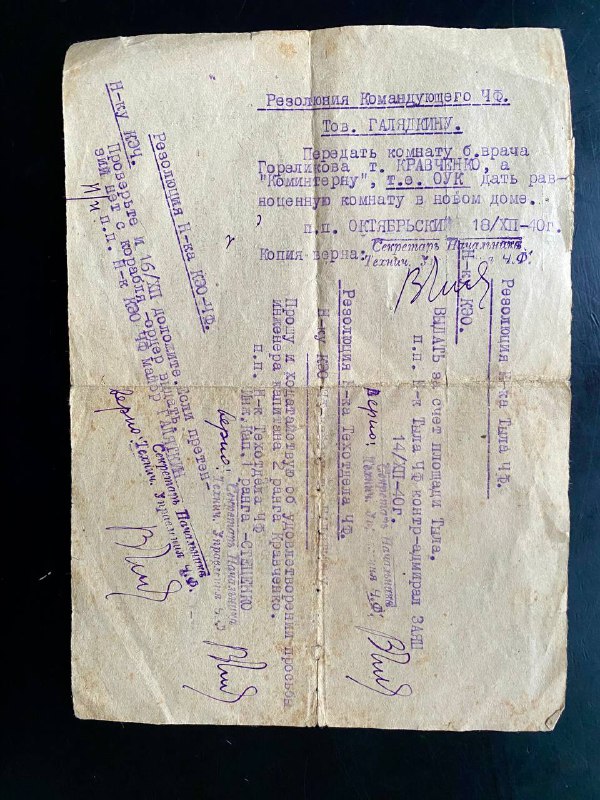 Резолюция Командующего ЧФ.
Тов. ГАЛЯДКИНУ.
Передать комнату б.врача
Гореликова т. КРАВЧЕНКО, а
"Коминтерну", т.е. ОУК дать рав-
ноценную комнату в новом доме.
п.п. ОКТЯБРЬСКИЙ 18/XII-40г.
Копия верна:
Секретарь Начальника
Технич. ЧФ.
Резолюция Н-ка Тыла ЧФ.
Н-ку КЭО.
ВЫДАТЬ за счет площади Тыла.
п.п. Н-к Тыла ЧФ контр-адмирал ЗАЯЦ
14/XII-40г.
Верно:
Секретарь Начальника
Технич. ЧФ.
Резолюция Н-ка Техотдела ЧФ.
Н-ку КЭО
Прошу и ходатайствую об удовлетворении просьбы
инженера капитана 2 ранга Кравченко.
п.п. Н-к Техотдела ЧФ
Инж.Кап.1 ранга -СТЕЦЕНКО
Верно:
Секретарь Начальника
Технич. Управления ЧФ
Резолюция Н-ка КЭО-ЧФ.
Н-ку КЭЧ.
Проверьте и 16/XII доложите. Если претен-
зий нет с корабля -ордер выдать.
п.п. Н-к КЭО ЧФ майор
Верно:
Секретарь Начальника
Технич. Управления ЧФ.